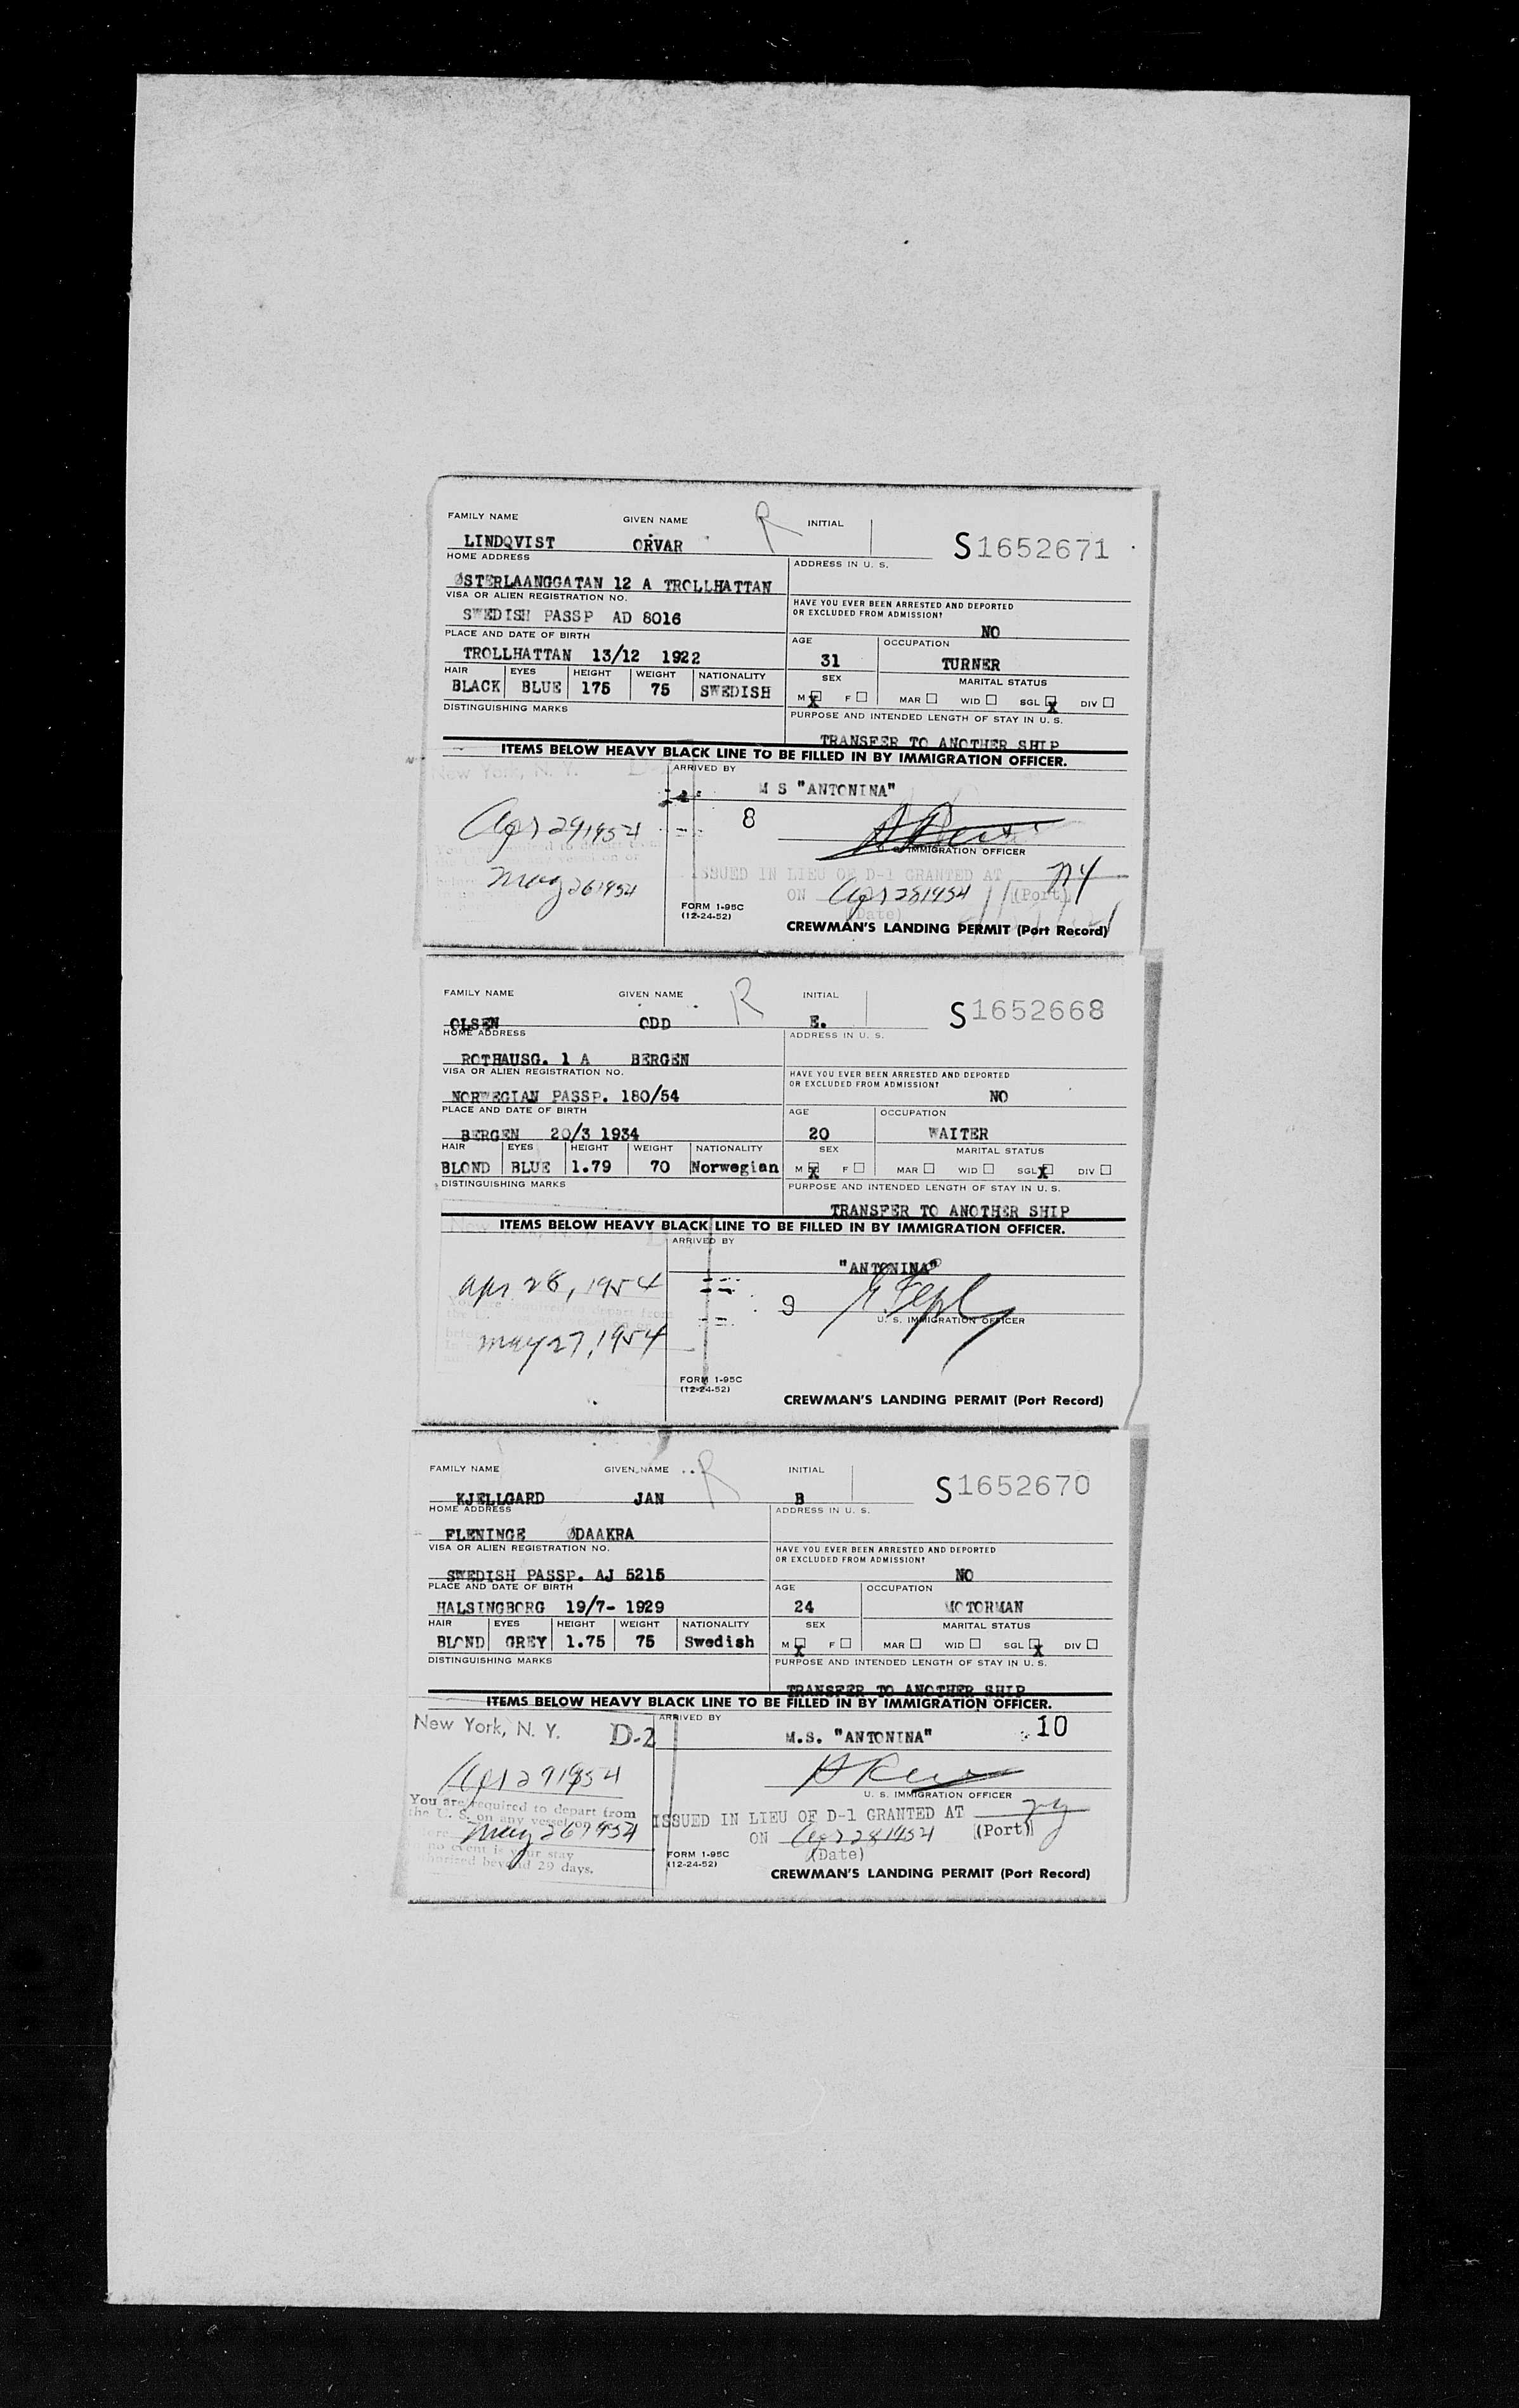 FAMILY NAME GIVEN NAME R INITIAL S1652671
LINDQVIST ORVAR
HOME ADDRESS ADDRESS IN U. S.
ØSTERLAANGGATAN 12 A TROLLHATTAN
VISA OR ALIEN REGISTRATION NO. HAVE YOU EVER BEEN ARRESTED AND DEPORTED OR EXCLUDED FROM ADMISSION?
SWEDISH PASSP AD 8016 NO
PLACE AND DATE OF BIRTH AGE OCCUPATION
TROLLHATTAN 13/12 1922 31 TURNER
HAIR EYES HEIGHT WEIGHT NATIONALITY SEX MARITAL STATUS
BLACK BLUE 175 75 SWEDISH M X F MAR WID SGL X DIV
DISTINGUISHING MARKS PURPOSE AND INTENDED LENGTH OF STAY IN U. S.
TRANSFER TO ANOTHER SHIP
ITEMS BELOW HEAVY BLACK LINE TO BE FILLED IN BY IMMIGRATION OFFICER.
New York, N. Y. ARRIVED BY
M S "ANTONINA"
Apr 29 1954 8
U. S. IMMIGRATION OFFICER
May 26 1954 ISSUED IN LIEU OF D-1 GRANTED AT NY
ON Apr 28 1954 (Port)
(Date)
FORM 1-95C
(12-24-52)
CREWMAN'S LANDING PERMIT (Port Record)
FAMILY NAME GIVEN NAME R INITIAL S1652668
OLSEN ODD E.
HOME ADDRESS ADDRESS IN U. S.
ROTHAUSG. 1 A BERGEN
VISA OR ALIEN REGISTRATION NO. HAVE YOU EVER BEEN ARRESTED AND DEPORTED OR EXCLUDED FROM ADMISSION?
NORWEGIAN PASSP. 180/54 NO
PLACE AND DATE OF BIRTH AGE OCCUPATION
BERGEN 20/3 1934 20 WAITER
HAIR EYES HEIGHT WEIGHT NATIONALITY SEX MARITAL STATUS
BLOND BLUE 1.79 70 Norwegian M X F MAR WID SGL X DIV
DISTINGUISHING MARKS PURPOSE AND INTENDED LENGTH OF STAY IN U. S.
TRANSFER TO ANOTHER SHIP
ITEMS BELOW HEAVY BLACK LINE TO BE FILLED IN BY IMMIGRATION OFFICER.
ARRIVED BY
"ANTONINA"
apr 28, 1954 9
U. S. IMMIGRATION OFFICER
may 27, 1954
FORM 1-95C
(12-24-52)
CREWMAN'S LANDING PERMIT (Port Record)
FAMILY NAME GIVEN NAME R INITIAL S1652670
KJELLGARD JAN B
HOME ADDRESS ADDRESS IN U. S.
FLENINGE ØDAAKRA
VISA OR ALIEN REGISTRATION NO. HAVE YOU EVER BEEN ARRESTED AND DEPORTED OR EXCLUDED FROM ADMISSION?
SWEDISH PASSP. AJ 5215 NO
PLACE AND DATE OF BIRTH AGE OCCUPATION
HALSINGBORG 19/7- 1929 24 MOTORMAN
HAIR EYES HEIGHT WEIGHT NATIONALITY SEX MARITAL STATUS
BLOND GREY 1.75 75 Swedish M X F MAR WID SGL X DIV
DISTINGUISHING MARKS PURPOSE AND INTENDED LENGTH OF STAY IN U. S.
TRANSFER TO ANOTHER SHIP
ITEMS BELOW HEAVY BLACK LINE TO BE FILLED IN BY IMMIGRATION OFFICER.
New York, N. Y. D-2 ARRIVED BY
M.S. "ANTONINA" 10
Apr 29 1954
U. S. IMMIGRATION OFFICER
You are required to depart from
the U. S. on any vessel on
May 26 1954
no event is your stay
beyond 29 days.
ISSUED IN LIEU OF D-1 GRANTED AT NY
ON Apr 28 1954 (Port)
(Date)
FORM 1-95C
(12-24-52)
CREWMAN'S LANDING PERMIT (Port Record)